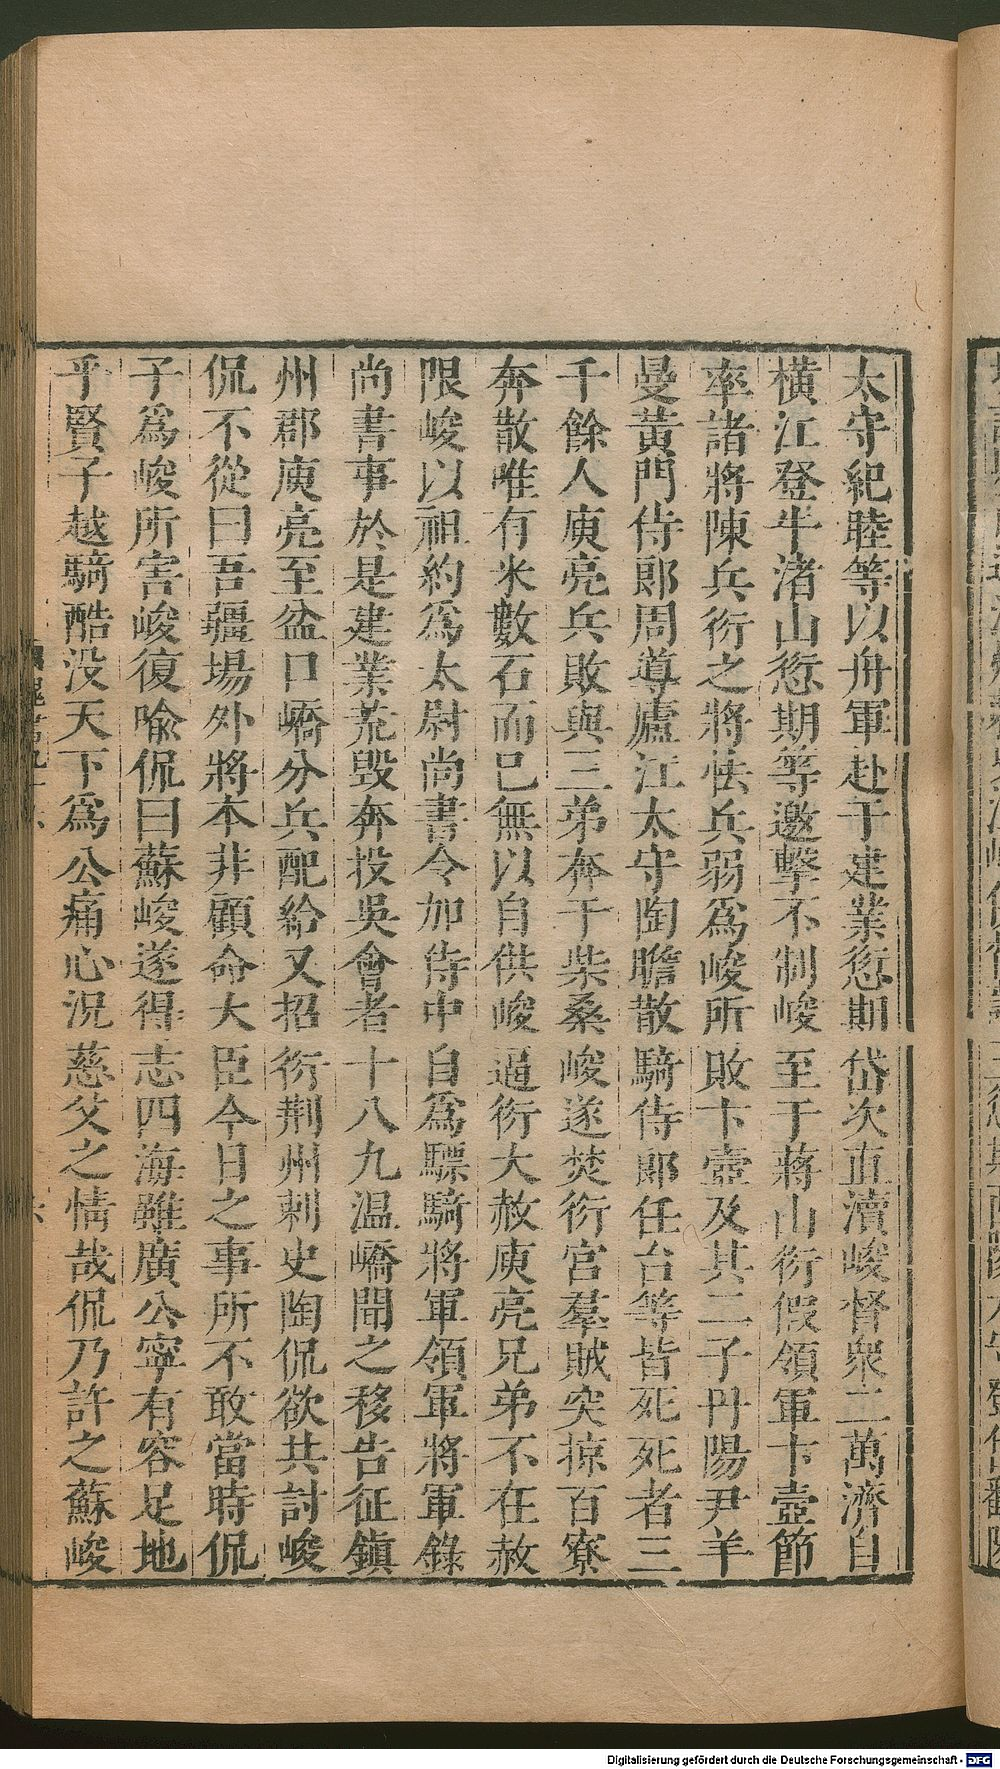 太守紀睦等以舟軍赴于建業愆期岱次直瀆峻督衆二萬濟自
橫江登牛渚山愆期等邀擊不制峻至于蔣山衍假領軍卞壼節
率諸將陳兵衍之將怯兵弱爲峻所敗卞壼及其二子丹陽尹羊
曼黃門侍郎周導廬江太守陶瞻散騎侍郎任台等皆死死者三
千餘人庾亮兵敗與三弟奔于柴桑峻遂焚衍宮羣賊突掠百寮
奔散唯有米數石而已無以自供峻逼衍大赦庾亮兄弟不在赦
限峻以祖約爲太尉尚書令加侍中自爲驃騎將軍領軍將軍錄
尚書事於是建業荒毀奔投吳會者十八九温嶠聞之移告征鎭
州郡庾亮至盆口嶠分兵配給又招衍荆州刺史陶侃欲共討峻
侃不從曰吾疆場外將本非顧命大臣今日之事所不敢當時侃
子爲峻所害峻復喩侃曰蘇峻遂得志四海雖廣公寧有容足地
乎賢子越騎酷没天下爲公痛心況慈父之情哉侃乃許之蘇峻
Digitalisierung gefördert durch die Deutsche Forschungsgemeinschaft - DFG